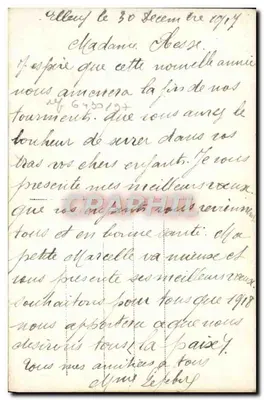 le 30 Decembre 1917
Madame Hesse.
J'espère que cette nouvelle année
nous amenera la fin de nos
tourments. Que vous aurez le
bonheur de serrer dans vos
bras vos chers enfants. Je vous
presente mes meilleurs voeux
que nos vous reviennent
tous et en bonne santé. Ma
petite Marcelle va mieux et
vous presente ses meilleurs voeux.
Souhaitons pour tous que 1918
nous apportera ce que nous
desirons tous (la paix).
Tous mes amitiés a tous
Mme
CRAPHIT